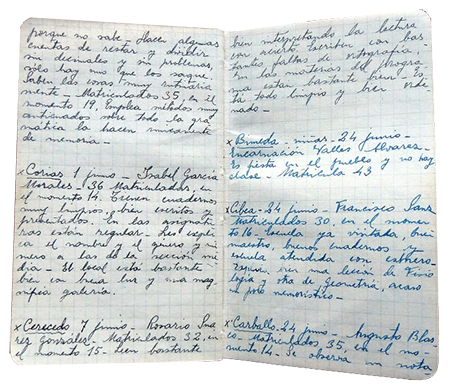 porque no sabe - Hacen algunas
cuentas de restar y dividir
sin decimales y sin problemas,
sólo hay uno que los saque.
Saben las cosas muy rutinaria
mente - Matriculados 35, en el
momento 19. Emplea métodos muy
anticuados sobre todo la gra
mática la hacen unicamente
de memoria -
x Corias 1 junio - Isabel García
Morales - 36 Matriculadas, en
el momento 14. Tienen cuadernos
muy limpios, bien escritos y
presentados. En las asignatu
ras están regular - Les expli
ca el nombre y el género y nú
mero a las de la sección me
dia - El local está bastante
bien con buena luz y una mag
nífica galería.
x Cerecedo 7 junio - Rosario Sua
rez González - Matriculados 32, en
el momento 15 - Leen bastante
bien interpretando la lectura
con acierto. Escriben con bas
tantes faltas de ortografía.
En las materias del progra
ma están bastante bien - Es
tá todo limpio y bien orde
nado -
x Bimeda - niñas - 24 junio -
Encarnación Valles Alvarez -
Es fiesta en el pueblo y no hay
clase - Matrícula 43
x Cibea - 24 junio - Francisco Sanz
Matriculados 30, en el momen
to 16 - Escuela ya visitada, buen
maestro, buenos cuadernos y
escuela atendida con esmero -
ver una lección de Fisio
logía y otra de Geometría, acaso
un poco memorístico -
x Carballo - 24 junio - Augusto Blas
co - Matriculados 35, en el mo
mento 14 - Se observa un nota